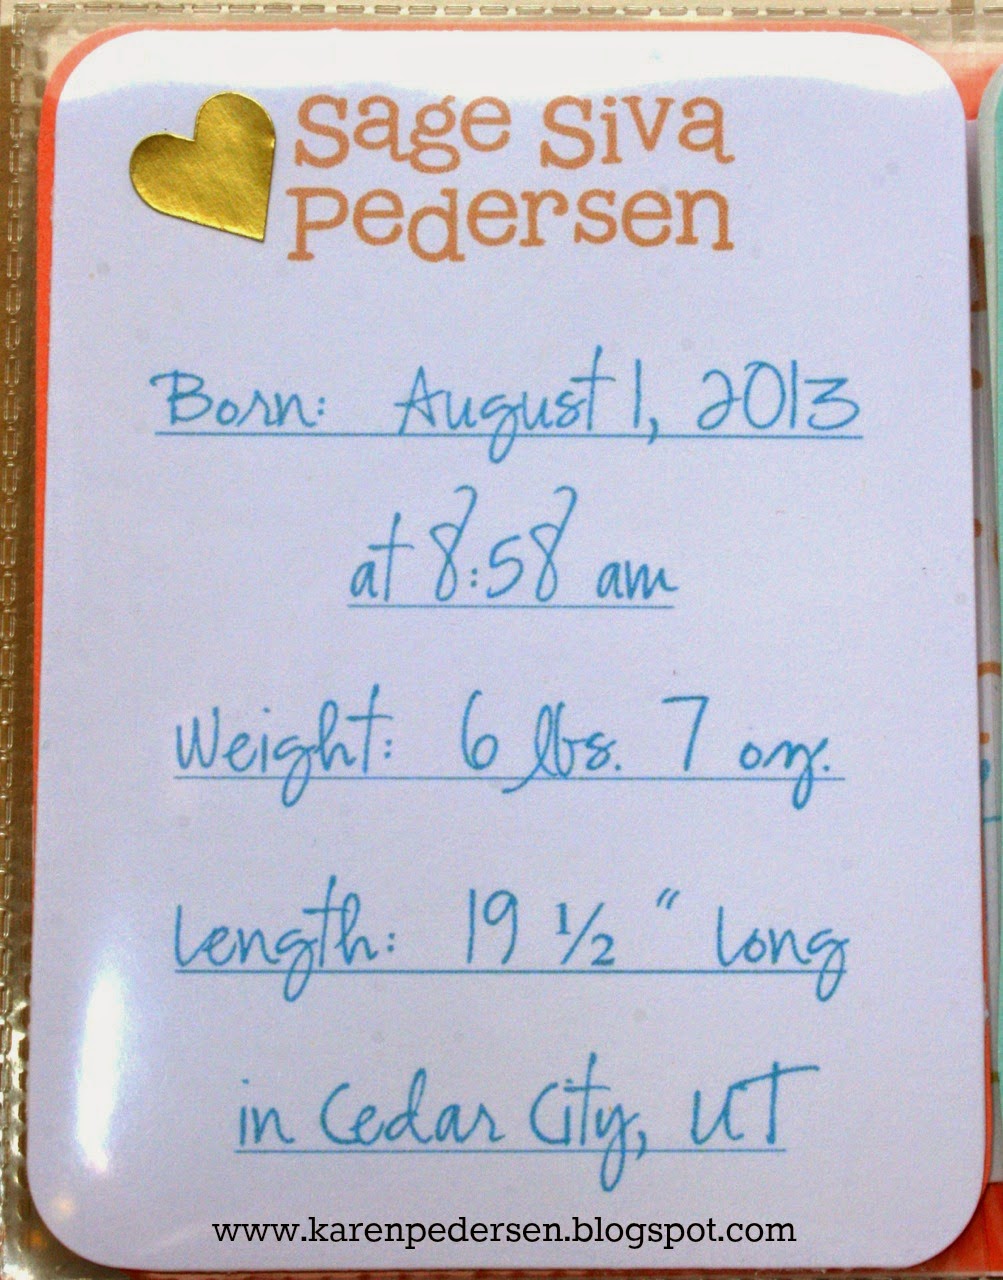 Sage Siva
Pedersen
Born: August 1, 2013
at 8:58 am
Weight: 6 lbs. 7 oz.
Length: 19 ½ " long
in Cedar City, UT
www.karenpedersen.blogspot.com